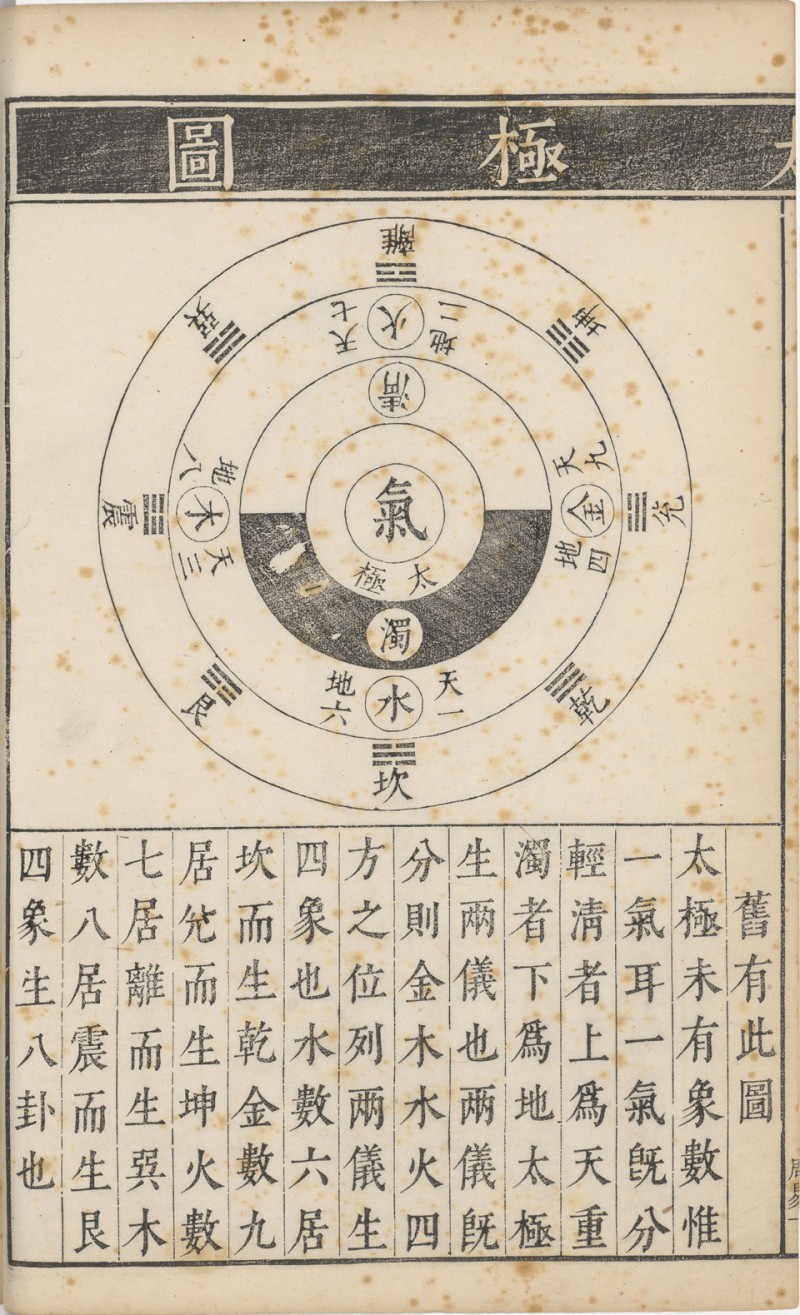 太極圖
離
坤
兌
乾
坎
艮
震
巽
天七
火
地二
天九
金
地四
天一
水
地六
天三
木
地八
清
氣
太極
濁
舊有此圖
太極未有象數惟
一氣耳一氣旣分
輕淸者上爲天重
濁者下爲地太極
生兩儀也兩儀旣
分則金木水火四
方之位列兩儀生
四象也水數六居
坎而生乾金數九
居兊而生坤火數
七居離而生巽木
數八居震而生艮
四象生八卦也
周易一